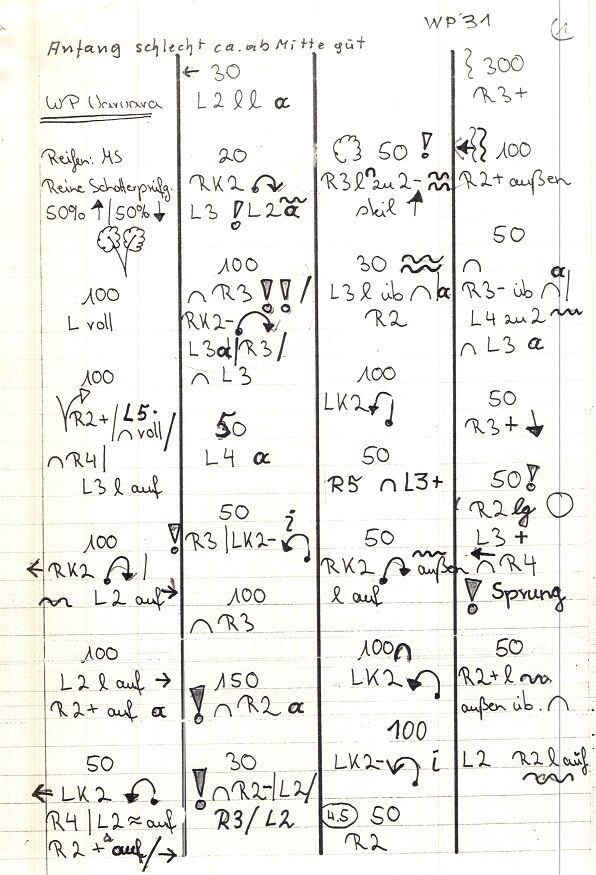 WP 31
Anfang schlecht ca. ab Mitte gut
WP
Reifen: MS
Reine Schotterprüfg.
50% ↑ / 50% ↓
100
L voll
100
R2+ / L5-
∩ voll /
∩ R4 |
L3 l auf
100
← RK2 /
~ L2 auf →
100
L2 l auf →
R2+ auf a
50
← LK2
R4 | L2 ≈ auf
R2 + a auf / →
← 30
L2 l l a
20
RK2
L3 ! L2 a
100
∩ R3 !! /
RK2-
L3 a / R3 /
∩ L3
50
L4 a
50
! R3 | LK2- i
100
∩ R3
150
! ∩ R2 a
30
! ∩ R2- | L2 /
R3 / L2
50 !
R3 l ∩ zu 2- ≈
skil ↑
30 ≈
L3 l üb ∩ | a
R2
100
LK2
50
R5 ∩ L3+
50
RK2 außen
l auf
100 ∩
LK2
100
LK2- i
4.5 50
R2
300
R3+
← 100
R2+ außen
50
∩ a
R3- üb ∩ |
L4 zu 2 ~
∩ L3 a
50
R3+ ↓
50 !
R2 lg
L3 +
← ∩ R4
! Sprung
50
R2+ l ~
außen üb. ∩
L2 R2 l auf